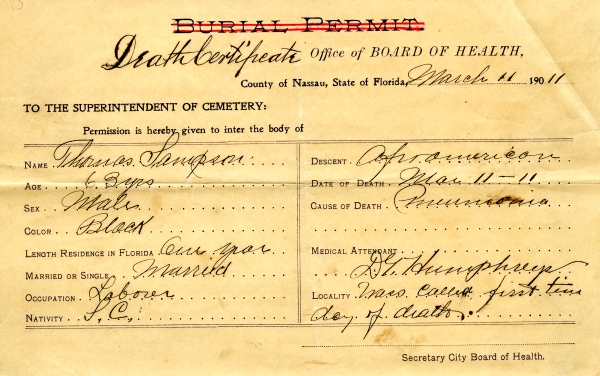 BURIAL PERMIT.
Death Certificate Office of BOARD OF HEALTH,
County of Nassau, State of Florida, March 11 1911
TO THE SUPERINTENDENT OF CEMETERY:
Permission is hereby given to inter the body of
NAME Thomas Sampson
AGE 63 yrs
SEX Male
COLOR Black
LENGTH RESIDENCE IN FLORIDA One year
MARRIED OR SINGLE Married
OCCUPATION Laborer
NATIVITY S.C.
DESCENT Afro american
DATE OF DEATH Mar 11-11
CAUSE OF DEATH Pneumonia
MEDICAL ATTENDANT
Dr Humphreys
LOCALITY Was called first time
day of death.
Secretary City Board of Health.